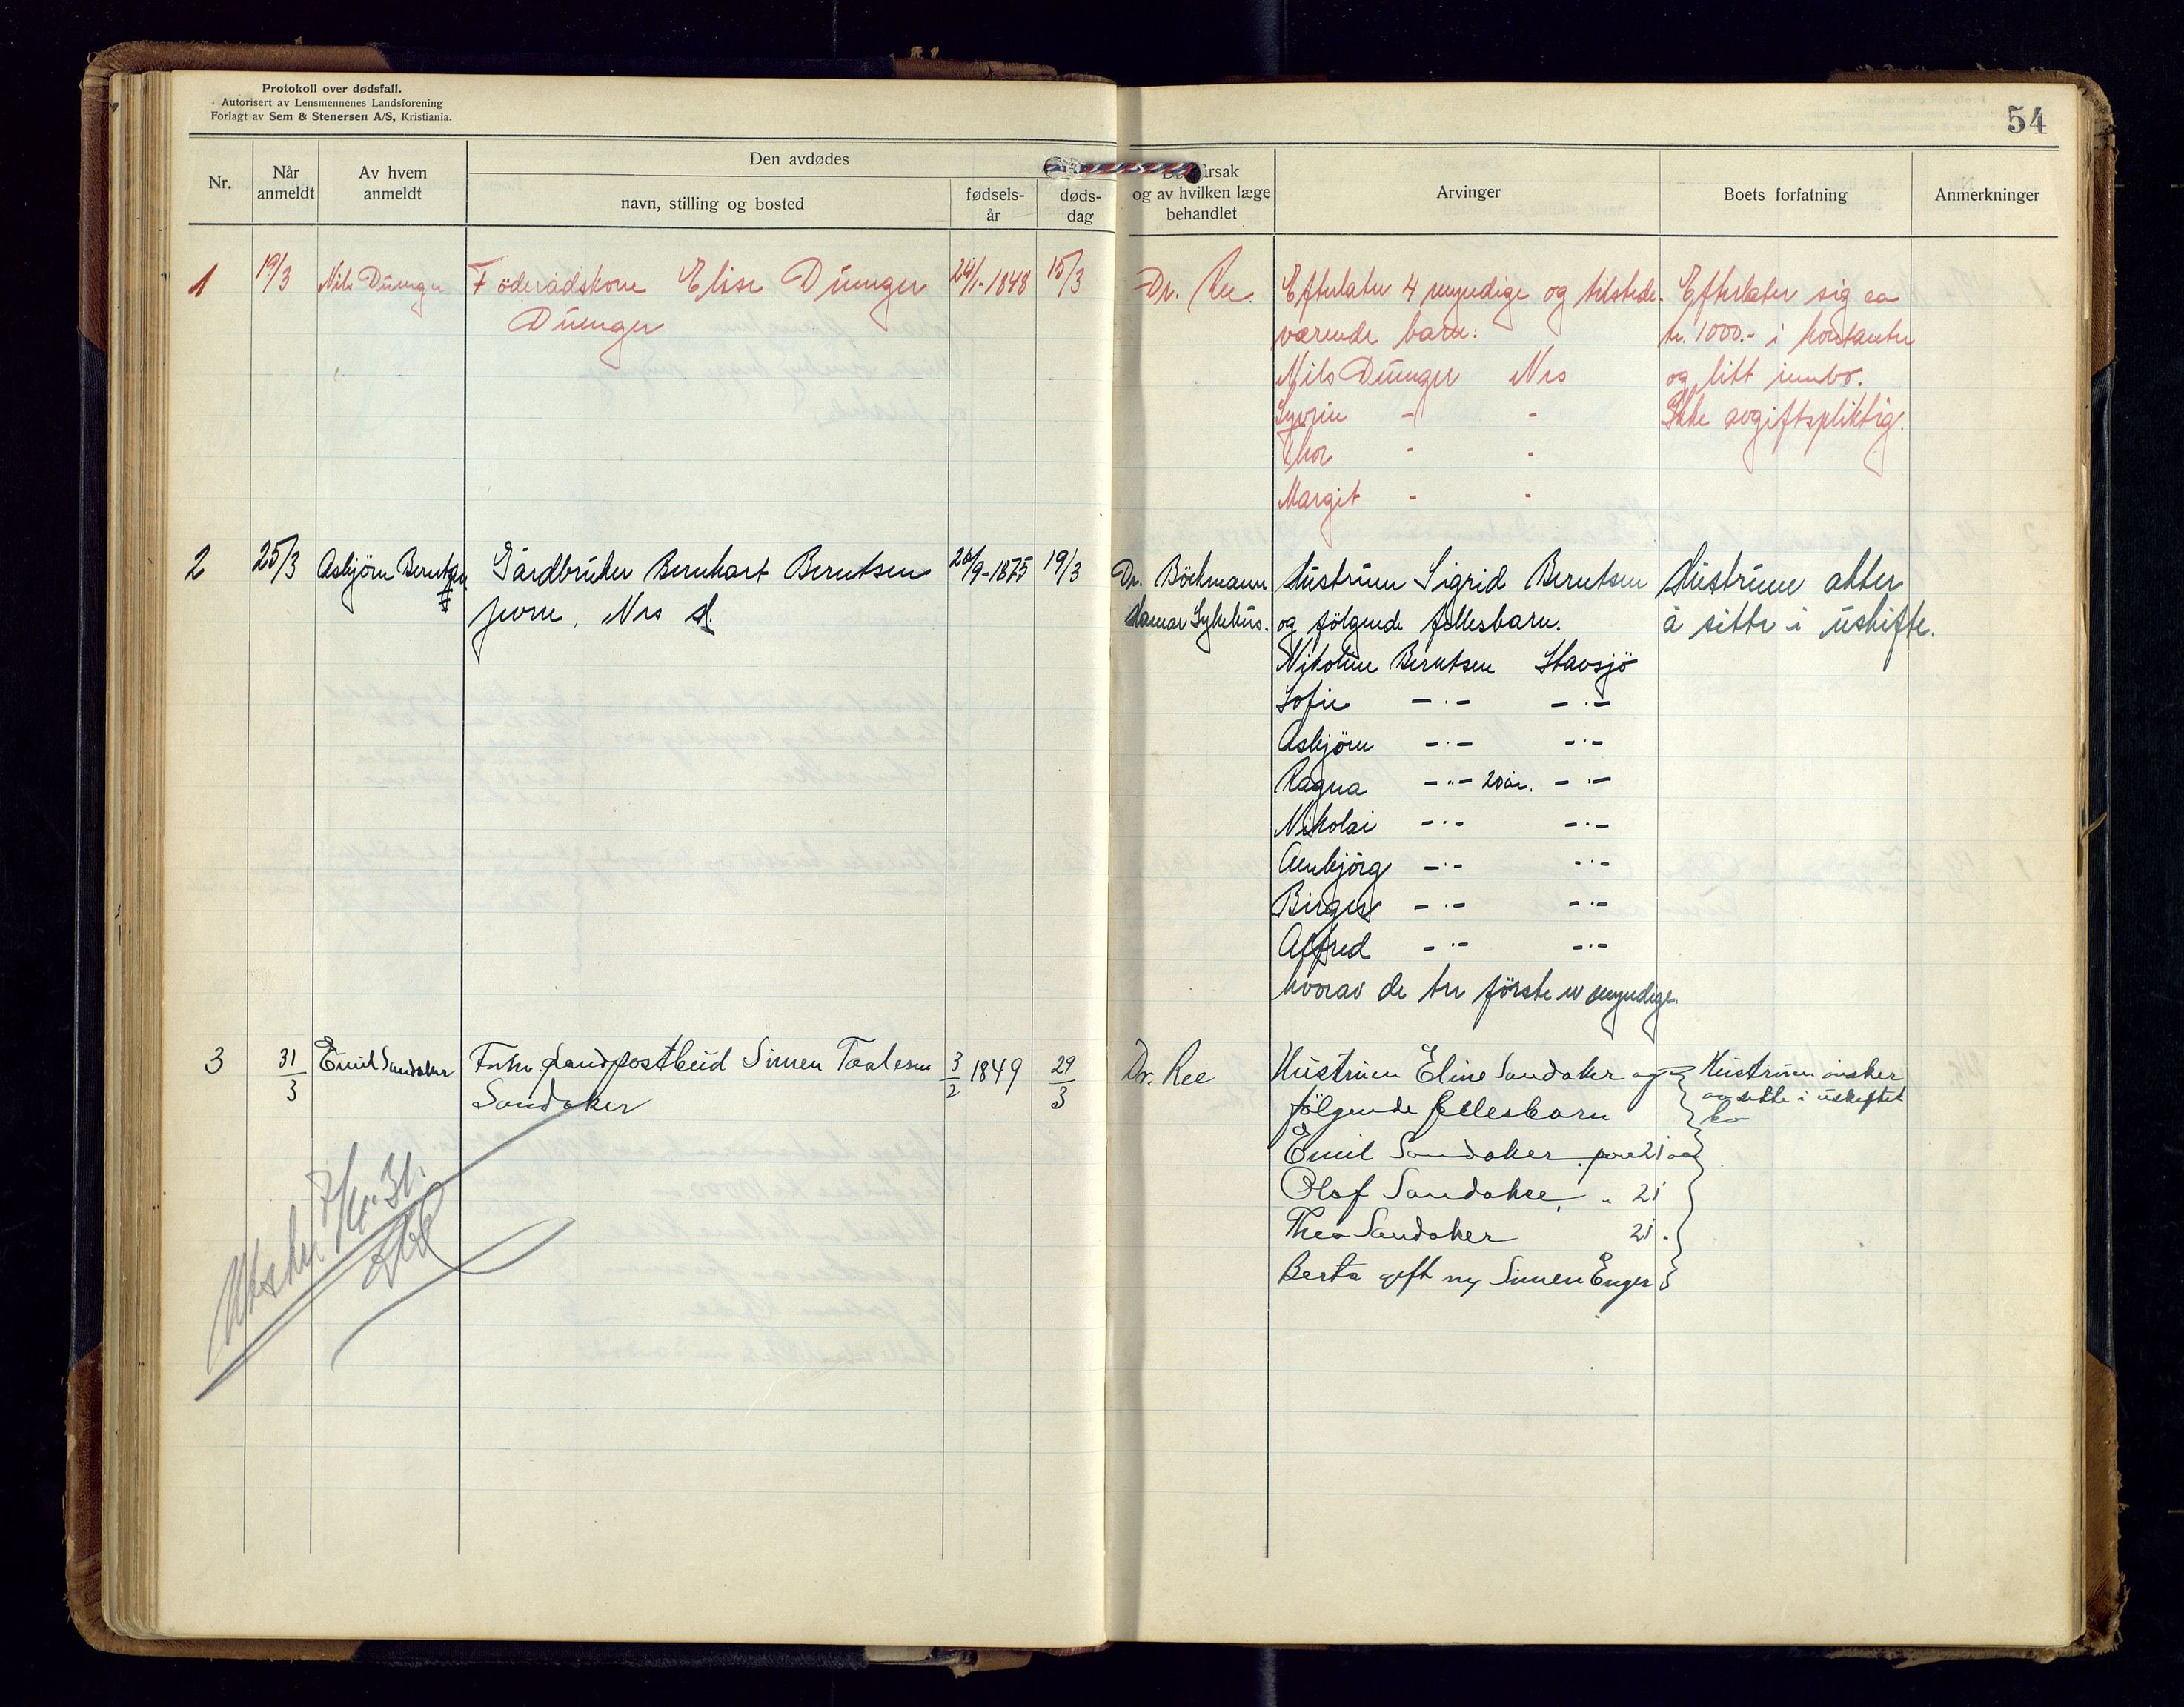 Protokoll over dødsfall.
Autorisert av Lensmennenes Landsforening
Forlagt av Sem & Stenersen A/S, Kristiania.
54
Nr.
Når anmeldt
Av hvem anmeldt
Den avdødes
navn, stilling og bosted
fødsels-år
døds-dag
og av hvilken læge behandlet
Arvinger
Boets forfatning
Anmerkninger
1 19/3 Nils Dúenger Föderådskone Elise Dúenger 24/1-1848 15/3 Dr. Ree. Efterlater 4 myndige og tilstede- Efterlater sig ca
Dúenger værende barn: kr. 1000.- i kontanter
Nils Dúenger Nes og litt innbo.
Syverin - - Ikke avgiftspliktig.
Thor - -
Margit - -
2 25/3 Asbjörn Berntsen Gårdbrúker Bernhart Berntsen 1875 19/3 Dr. Böckmann Hústrúen Sigrid Berntsen Hústrúen akter
Nes Hamar Sykehús. og fölgende fellesbarn. å sitte i úskifte.
Nikoline Berntsen Stavsjö
Sofie -·- -·-
Asbjörn -·- -·-
Ragna -·- 20 år. -·-
Nikolai -·- -·-
-·- -·-
Birger -·- -·-
Alfred -·- -·-
hvorav de tre förste er myndige.
3 31/3 Emil Sandaker Forhv. Landpostbúd Simen Taalesen 3/2 1849 29/3 Dr. Ree Hústrúen Eline Sandaker og Hústrúen önsker
Sandaker fölgende fellesbarn aa sitte i úskiftet
bo
Emil Sandaker, over 21 aar
Olaf Sandaker, " 21
Thea Sandaker 21 "
Berta gift m/ Simen Enger
31.